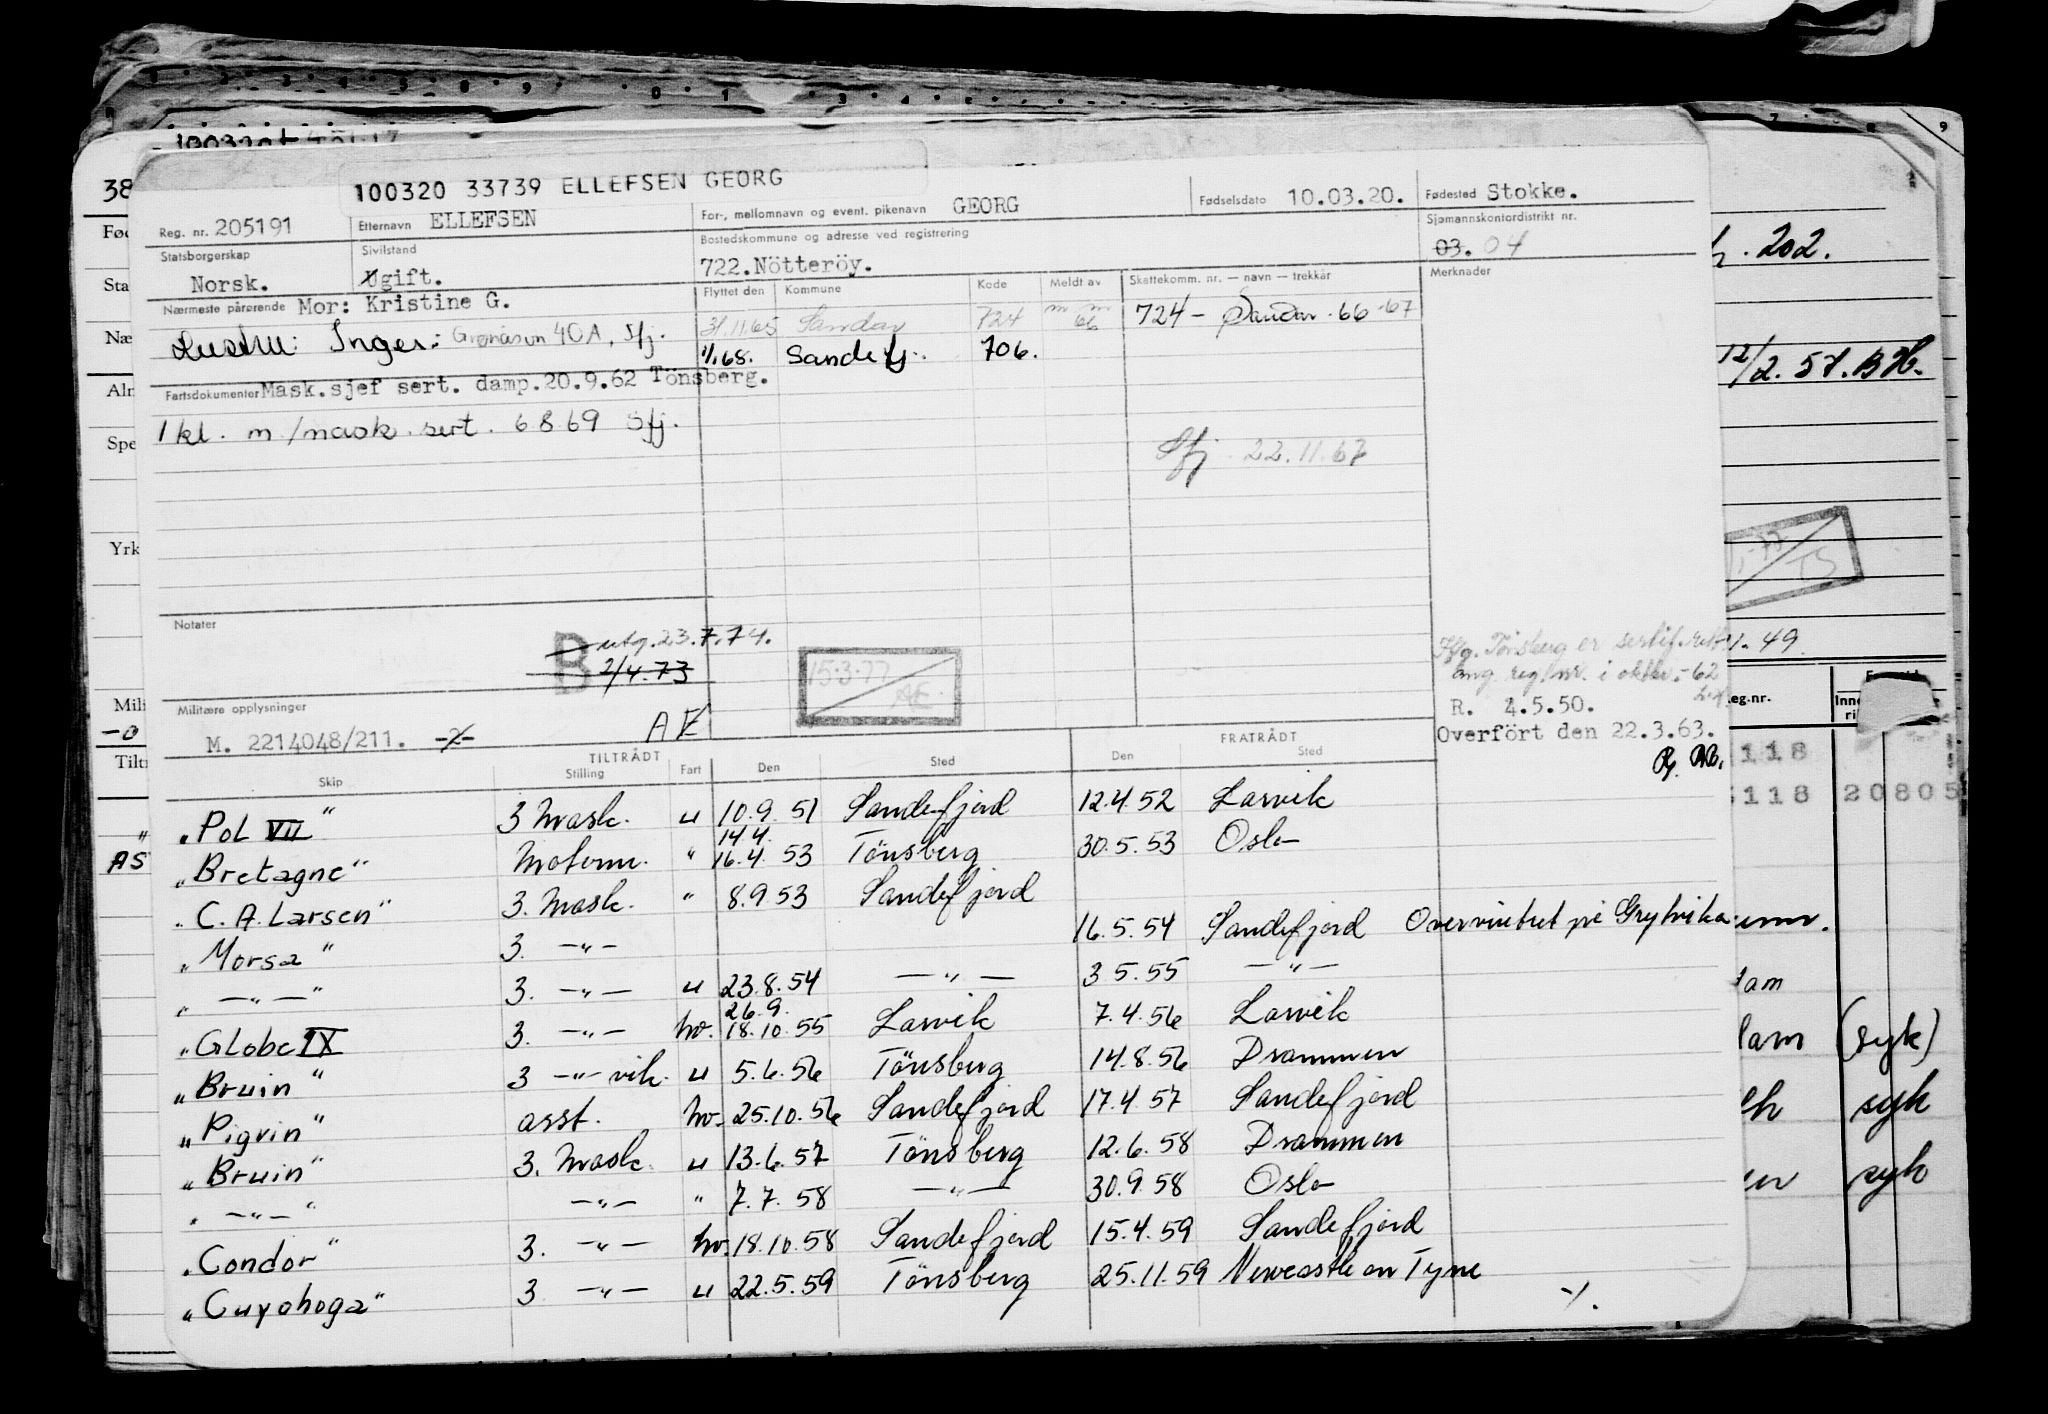 100320 33739 ELLEFSEN GEORG
Reg. nr. 205191 Etternavn ELLEFSEN For-, mellomnavn og event. pikenavn GEORG Fødselsdato 10.03.20. Fødested Stokke.
Statsborgerskap Norsk. Sivilstand Ugift. Bostedskommune og adresse ved registrering 722.Nötteröy. Sjømannskontordistrikt nr. 03. 04
Nærmeste pårørende Mor: Kristine G. Flyttet den Kommune Kode Meldt av Skattekomm. nr. — navn — trekkår Merknader
Hustru: Inger: 40A, Sfj. 31/11.65 Sandar 724 66 724 - Sandar 66-67
1/1.68. Sandefj. 706.
Fartsdokumenter Mask.sjef sert. damp.20.9.62 Tönsberg.
1 kl. m/mask. sert. 6869 Sfj.
Sfj 22.11.67
Notater
B utg. 23.7.74.
2/4.73
15.3.77 AE
Sfj. Tönsberg er sertif.
ang. reg.nr. i oktbr.-62
R. 4.5.50.
Overfört den 22.3.63.
Militære opplysninger
M. 2214048/211. -2- AE
TILTRÅDT FRATRÅDT
Skip Stilling Fart Den Sted Den Sted
"Pol VII" 3 mask. u 10.9.51 Sandefjord 12.4.52 Larvik
14.4.
"Bretagne" Motorm. " 16.4.53 Tönsberg 30.5.53 Oslo
"C.A. Larsen" 3. mask. " 8.9.53 Sandefjord
"Morsa" 3. -"- 16.5.54 Sandefjord Overvintret på Grytvika
" -"- " 3. -"- u 23.8.54 -"- 3.5.55 -"-
26.9.
"Globe IX 3. -"- hv. 18.10.55 Larvik 7.4.56 Larvik
"Bruin" 3 -"- vik. u 5.6.56 Tönsberg 14.8.56 Drammen
"Pigvin" asst. hv. 25.10.56 Sandefjord 17.4.57 Sandefjord
"Bruin" 3. mask. u 13.6.57 Tönsberg 12.6.58 Drammen
" -"- " -"- " 7.7.58 -"- 30.9.58 Oslo
"Condor" 3. -"- hv. 18.10.58 Sandefjord 15.4.59 Sandefjord
"Cuyohoga" 3 -"- u 22.5.59 Tönsberg 25.11.59 Newcastle on Tyne
./.
38
202.
12/2. 57.
49
eg.nr.
118
118 20805
(syk)
syk
syk
AS